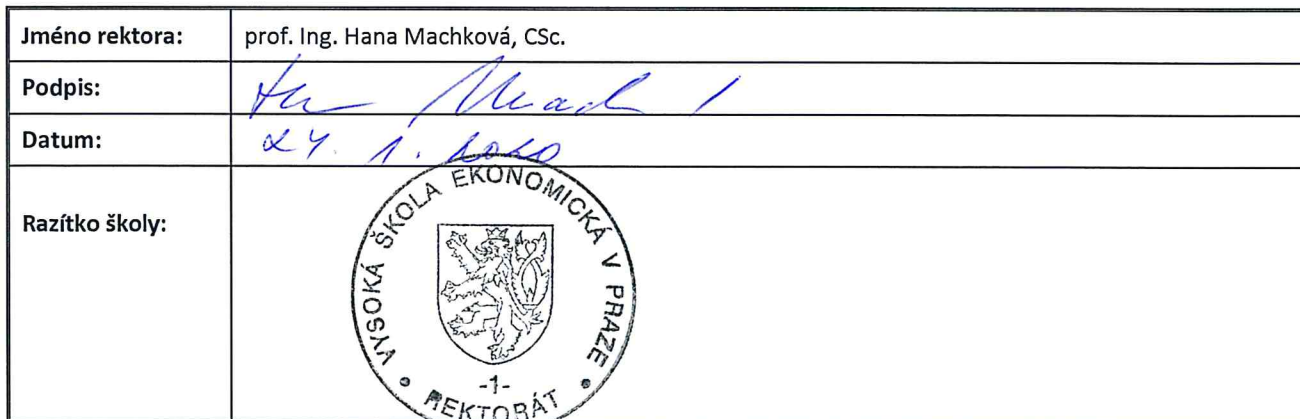 Jméno rektora: prof. Ing. Hana Machková, CSc.
Podpis:
Datum: 24. 1. 2020
Razítko školy:
VYSOKÁ ŠKOLA EKONOMICKÁ V PRAZE
-1-
REKTORÁT